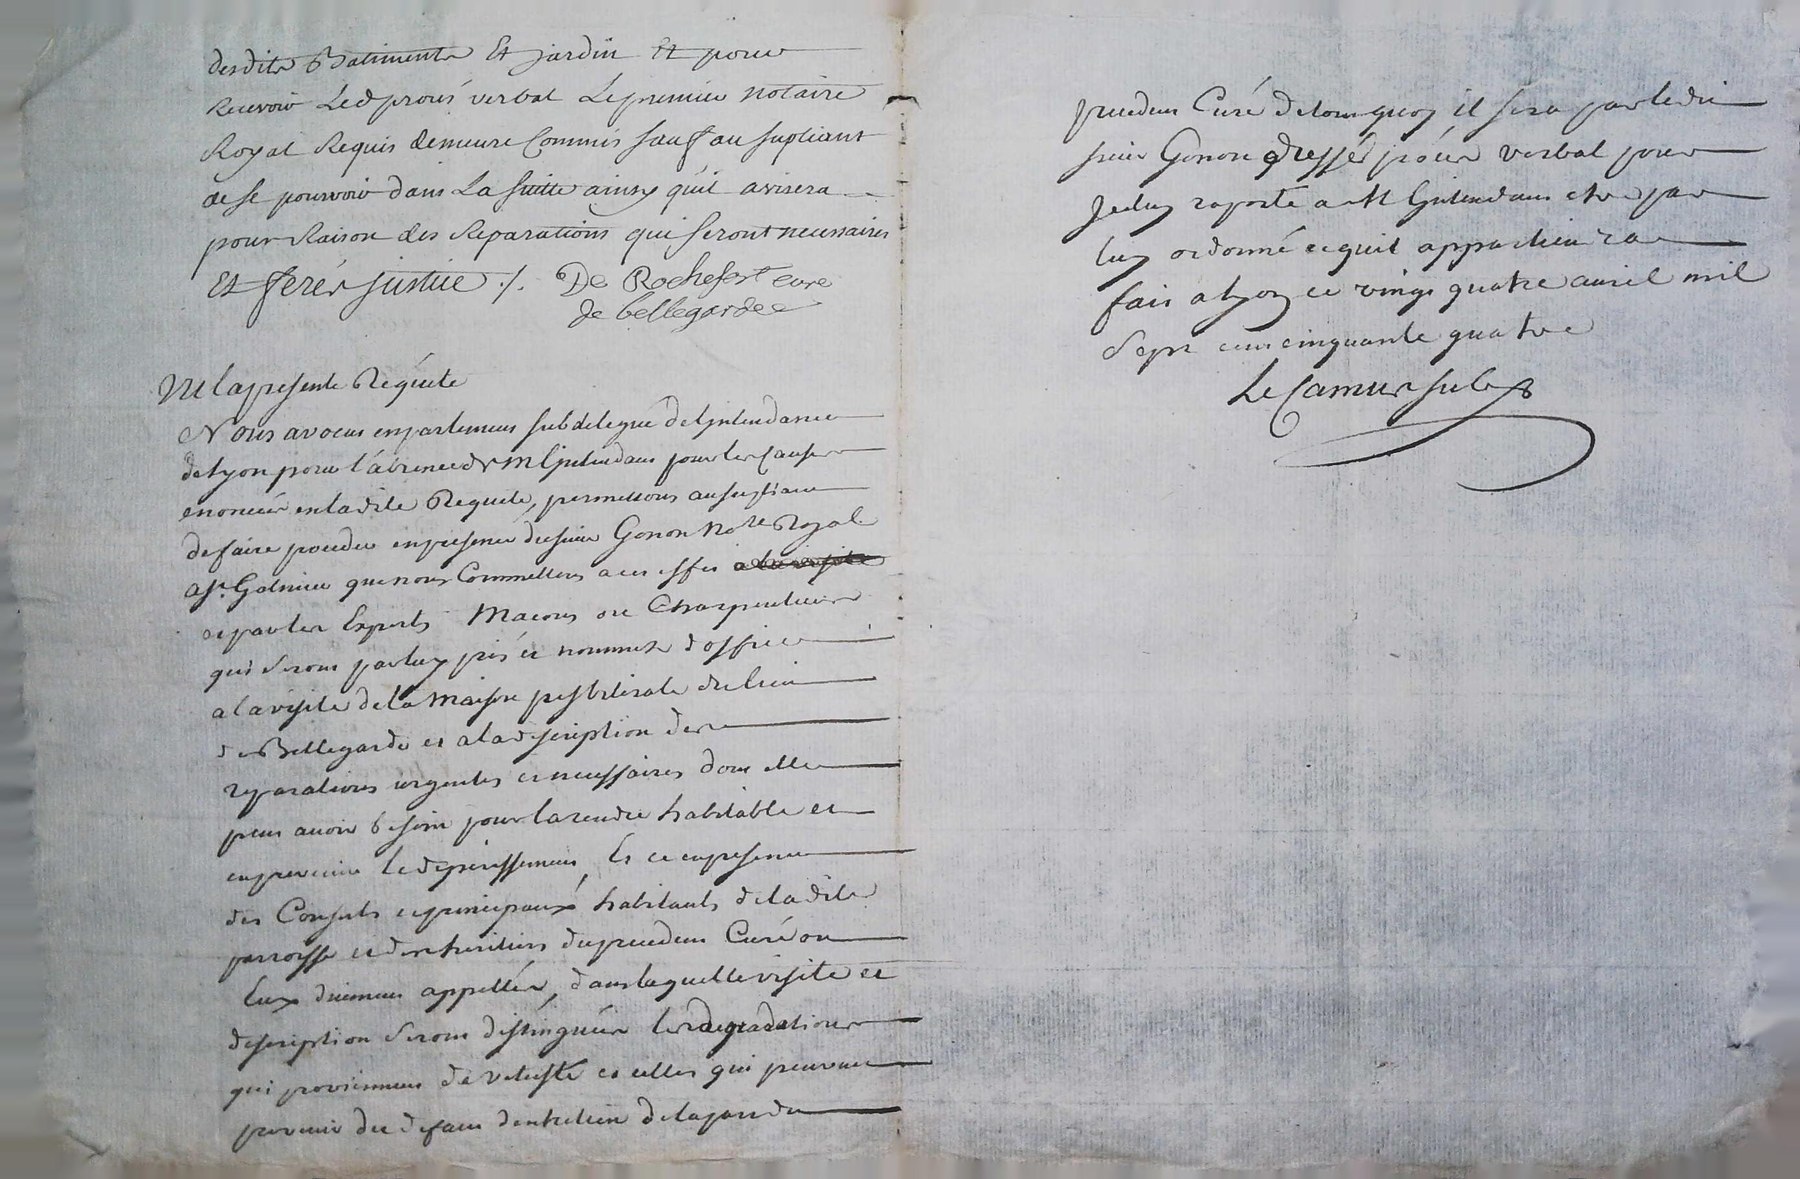 desdits Batiments Et jardin Et pour
Recevoir Led prous verbal Le premier notaire
Royal Requis demeure Commis sauf au supliant
de se pourvoir dans La suitte ainsy quil avisera
pour Raison des Reparations qui seront necessaires
Et ferés justice ./. De Rochefort curé
de bellegarde
Vu la presente Requete
Nous avocat en parlement subdelegué de Lintendance
de Lyon pour l'absence de M Lintendant pour les causes
enoncées en ladite Requete, permettons au supliant
de faire proceder en presence du sieur Gonon No.re Royal
a St. Galmier que nous Commettons a cet effet
et par les Experts Macons ou Charpentiers
qui seront par luy pris et nommés d'office
a la visite de la maison presbiterale du lieu
de Bellegarde et a la description des
reparations urgentes et necessaires dont elle
peut avoir besoin pour la rendre habitable et
en prevenir le deperissement, Et ce en presence
des Consuls et principaux habitants de ladite
parroisse et des heritiers du precedent Curé ou
Eux duement appellés, dans laquelle visite et
description seront distinguées les degradations
qui proviennent de vetusté et celles qui peuvent
provenir du defaut dentretien de la part du
precedent Curé de tout quoy il sera par ledit
sieur Gonon dressé procés verbal pour
Jceluy raporté a M Lintendant etre par
luy ordonné ce quil appartiendra
fait a Lyon ce vingt quatre avril mil
Sept cent cinquante quatre
Le Camus sub